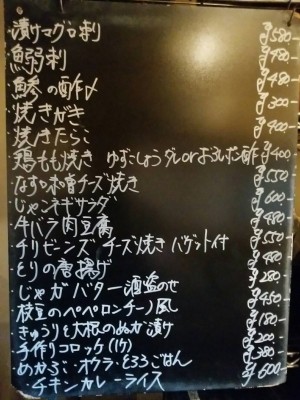 漬けマグロ刺 ¥580
鰯刺 ¥480
鯵の酢〆 ¥480
焼きがき ¥300
焼きたらこ ¥400
鶏もも焼き ゆずこしょうダレorおろしポン酢 ¥400
なすの味噌チーズ焼き ¥550
じゃこネギサラダ ¥600
牛バラ肉豆腐 ¥480
チリビーンズチーズ焼き バゲット付 ¥550
とりの唐揚げ ¥480
じゃがバター酒盗のせ ¥280
枝豆のペペロンチーノ風 ¥450
きゅうりと大根のぬか漬け ¥180
手作りコロッケ(1ケ) ¥200
めかぶ・オクラ・とろろごはん ¥380
チキンカレーライス ¥600